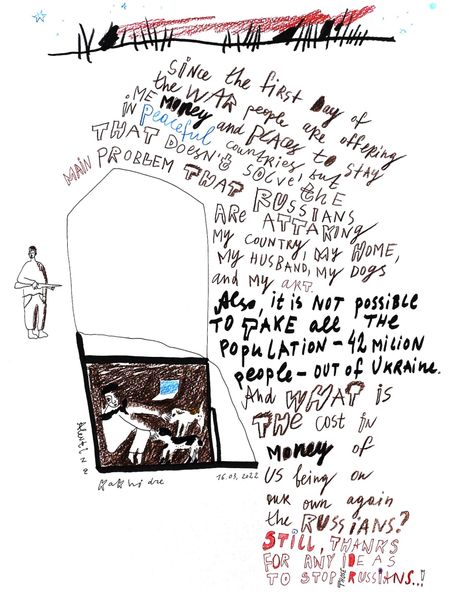 SINCE the first DAY of
the WAR people are offering
ME MONEY and PLACES to STAY
IN peaceful countries, but
THAT DOESN'T SOLVE the
MAIN PROBLEM THAT RUSSIANS
ARE ATTAKING
MY COUNTRY, MY HOME,
MY HUSBAND, MY DOGS
and MY ART.
Also, it is NOT possible
TO TAKE all THE
POPULATION – 42 MILION
people – OUT OF UKRAINE.
And WHAT is
THE cost in
MONEY of
US being on
our own again
the RUSSIANS?
STILL, THANKS
FOR ANY IDEAS
TO STOP RUSSIANS..!
Alevtina
Kakhidze
16.03.2022